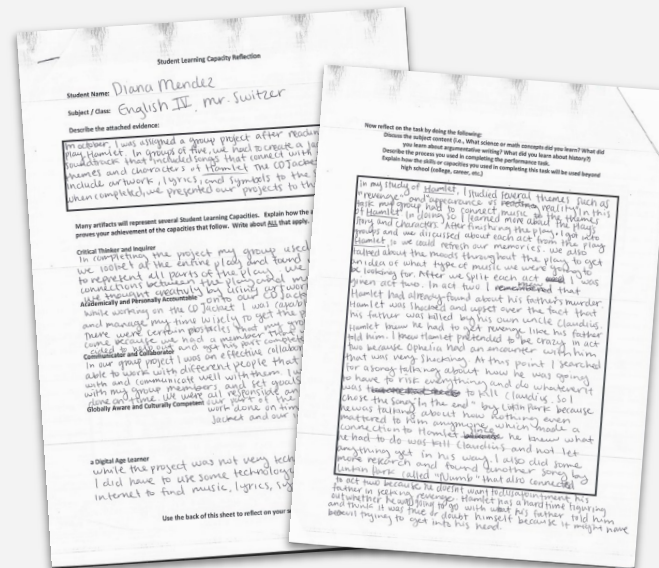 Student Learning Capacity Reflection
Student Name: Diana Mendez
Subject / Class: English IV, mr. Switzer
Describe the attached evidence:
In october, I was assigned a group project after readin
play Hamlet. In groups of five, we had to create a
soundtrack that included songs that connect with
themes and characters of Hamlet The CD Jacket
include artwork, lyrics, and symbols to the
when completed, we presented our projects to th
Many artifacts will represent several Student Learning Capacities. Explain how the a
proves your achievement of the capacities that follow. Write about ALL that apply.
Critical Thinker and Inquirer
In completing the project my group used
we looked at the entire play and found
to represent all parts of the play. we
connections between the play and mu
we thought creatively by using artwork
Academically and Personally Accountable onto our CD Jack
while working on the CD Jacket I was capabl
and manage my time wisely to get the
there were certain obstacles that my gro
come because we had a number
Communicator and Collaborator
In our group project I was an effective collabor
able to work with different people that
with and communicate well with them. I
with my group members and set goals
done on time. we were all responsible
Globally Aware and Culturally Competent our part of the
work done on tim
Jacket and our
a Digital Age Learner
while the project was not very tech
I did have to use some technology
internet to find music, lyrics, sy
Use the back of this sheet to reflect on your
Now reflect on the task by doing the following:
Discuss the subject content (i.e., What science or math concepts did you learn? What did
you learn about argumentative writing? What did you learn about history?)
Describe the process you used in completing the performance task.
Explain how the skills or capacities you used in completing this task will be used beyond
high school (college, career, etc.)
In my study of Hamlet, I studied several themes such as
"revenge" and "appearance vs reality" In this
task my group had to connect music to the themes
of Hamlet in doing so I learned more about the plays
story and characters. After finishing the play, I go into
groups and we discussed about each act from the play
Hamlet so we could refresh our memories. we also
talked about the moods throughout the play to get
an idea of what type of music we were going to
be looking for. After we split each act I was
given act two. In act two I that
Hamlet had already found about his father's murder
Hamlet was shocked and upset over the fact that
his father was killed by his own uncle Claudius.
Hamlet knew he had to get revenge like his father
told him. I knew Hamlet pretended to be crazy in act
two because Ophelia had an encounter with him
that was very shocking. At this point I searched
for a song talking about how he was going
to have to risk everything and do whatever it
was to kill Claudius. so I
chose the song "In the end" by Linkin Park because
he was talking about how nothing even
mattered to him anymore which made a
connection to Hamlet since he knew what
he had to do was kill Claudius and not let
anything get in his way. I also did some
more research and found another song by
Linkin Park called "Numb" that also connected
to act two because he doesnt want to disappointment his
father in seeking revenge. Hamlet has a hard time figuring
out whether he was going to go with what his father told him
and think it was true or doubt himself because it might have
been trying to get into his head.